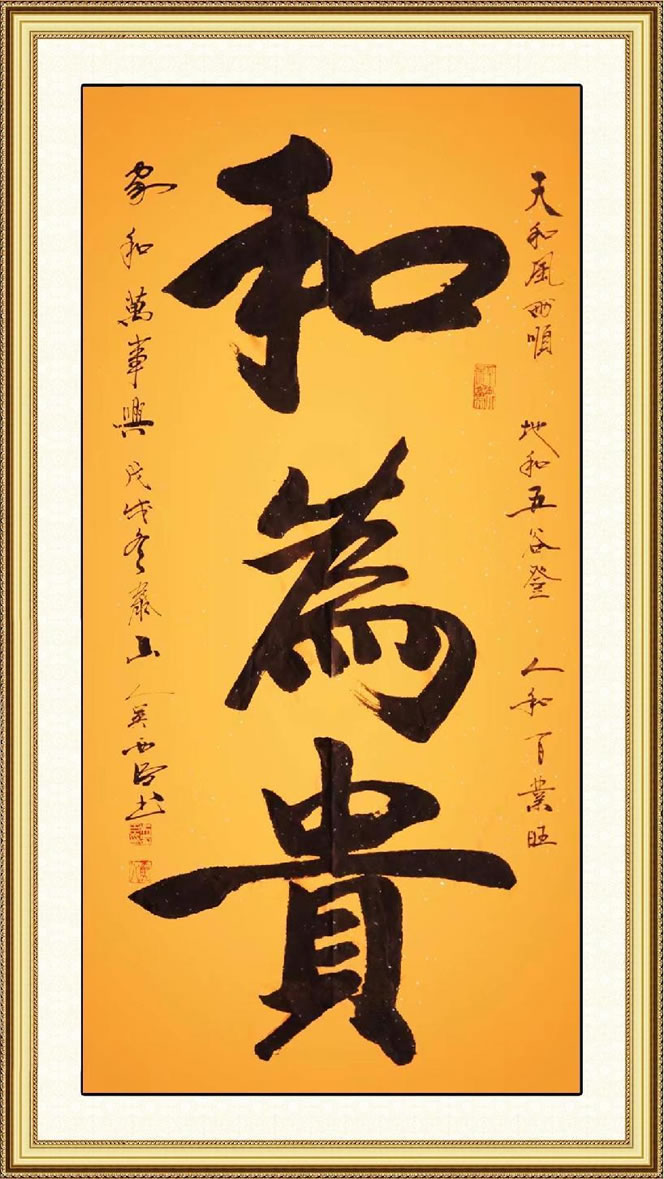 天和風雨順 地和五谷登 人和百業旺
和為貴
家和萬事興 戊戌冬 山人 西 书